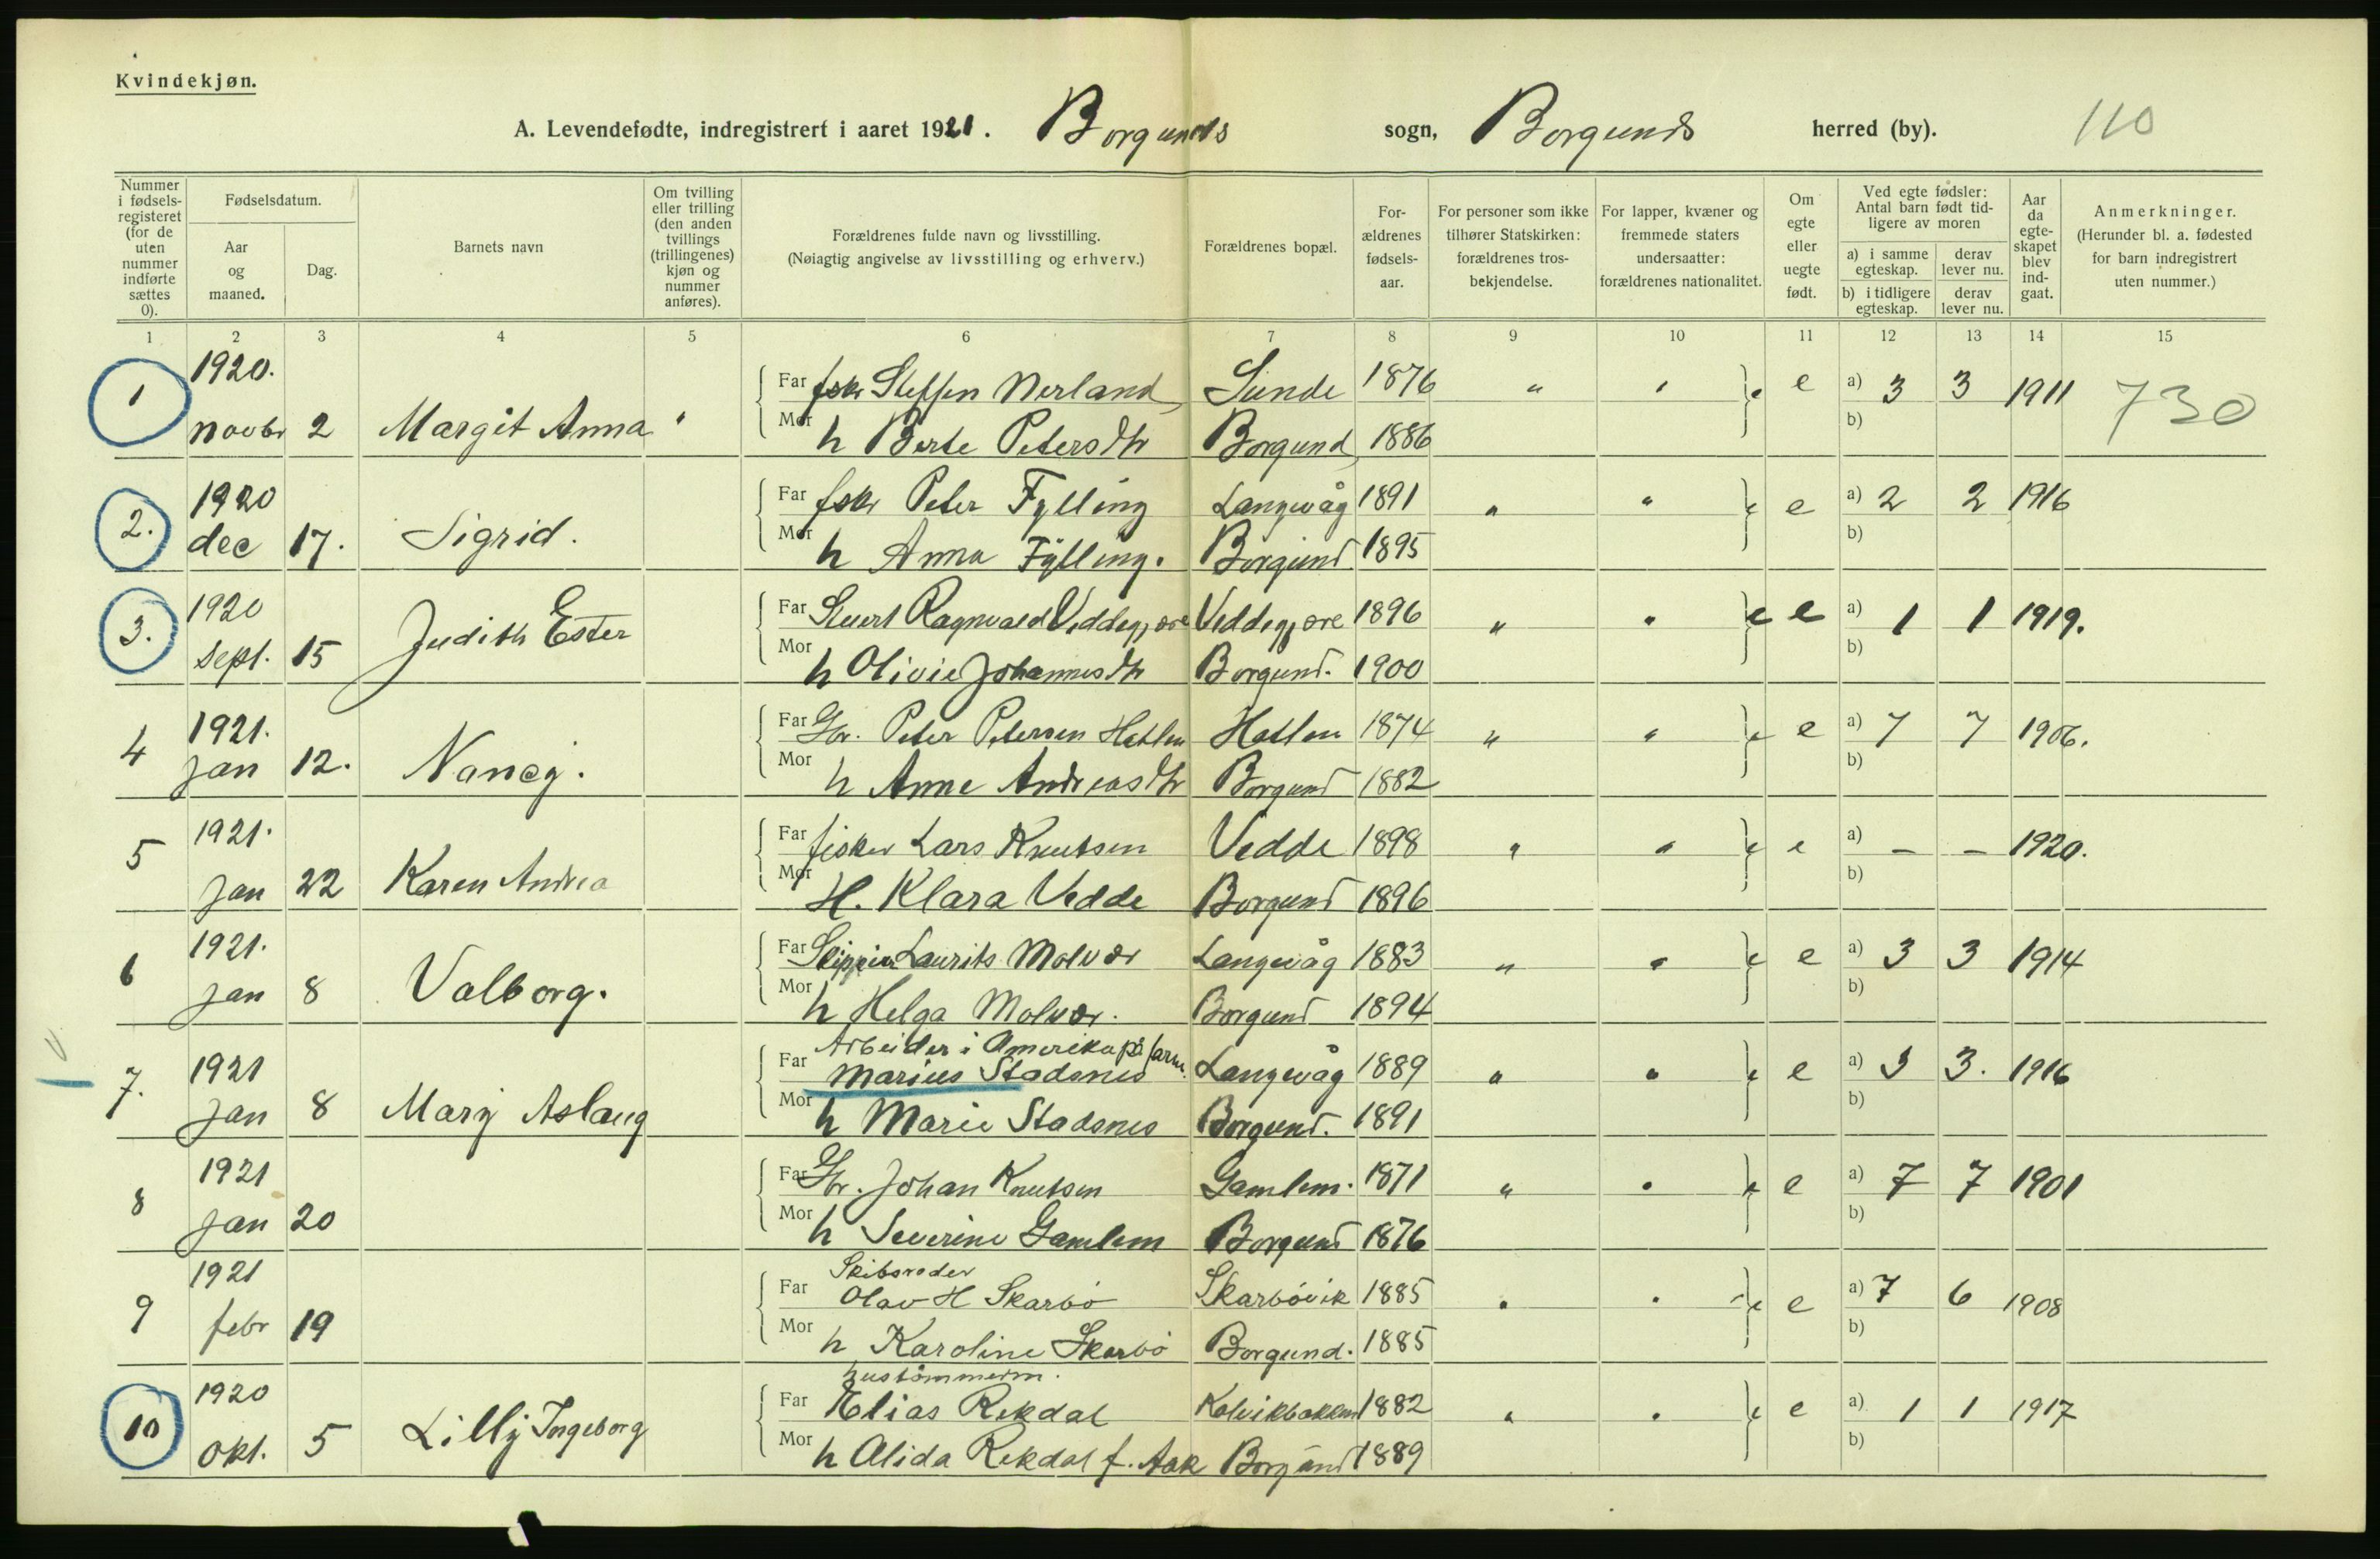 Kvindekjøn.
A. Levendefødte, indregistrert i aaret 1921. Borgunds sogn, Borgunds herred (by). 110
Nummer i fødsels-registeret (for de uten nummer indførte sættes 0).
Fødselsdatum.
Aar og maaned.
Dag.
Barnets navn
Om tvilling eller trilling (den anden tvillings (trillingenes) kjøn og nummer anføres).
Forældrenes fulde navn og livsstilling. (Nøiagtig angivelse av livsstilling og erhverv.)
Forældrenes bopæl.
For-ældrenes fødsels-aar.
For personer som ikke tilhører Statskirken: forældrenes tros-bekjendelse.
For lapper, kvæner og fremmede staters undersaatter: forældrenes nationalitet.
Om egte eller uegte født.
Ved egte fødsler: Antal barn født tid-ligere av moren
a) i samme egteskap. derav lever nu.
b) i tidligere egteskap. derav lever nu.
Aar da egte-skapet blev ind-gaat.
Anmerkninger. (Herunder bl. a. fødested for barn indregistrert uten nummer.)
1 2 3 4 5 6 7 8 9 10 11 12 13 14 15
1 1920. Far fskr Steffen Nerland Sunde 1876 " " e a) 3 3 1911 730
novbr 2 Margit Anna " Mor h Berte Petersdtr Borgund 1886 b)
2. 1920 Far fskr Peter Fylling Langevåg 1891 " " e a) 2 2 1916
dec 17. Sigrid. Mor h Anna Fylling. Borgund 1895 b)
3. 1920 Far Sivert Ragnvald Veddegjære Veddegjære 1896 " " e a) 1 1 1919.
sept. 15 Judith Ester Mor h Olivie Johannesdtr Borgund. 1900 b)
4 1921. Far Gbr. Peter Petersen Hatlen Hatlen 1874 " " e a) 7 7 1906.
jan 12. Nancy. Mor h Anne Andreasdtr Borgund 1882 b)
5 1921. Far fisker Lars Knutsen Vedde 1898 " " e a) – – 1920.
jan 22 Karen Andrea Mor H. Klara Vedde Borgund 1896 b)
6 1921. Far Skipper Laurits Molvær Langevåg 1883 " " e a) 3 3 1914
jan 8 Valborg. Mor h Helga Molvær. Borgund 1894 b)
Arbeider i Amerika på farm.
7. 1921 Far Marius Stadsnes Langevåg 1889 " " e a) 3 3. 1916
jan 8 Mary Aslaug Mor h Marie Stadsnes Borgund. 1891 b)
8 1921 Far Gbr. Johan Knutsen Gamlem. 1871 " " e a) 7 7 1901
jan 20 Mor h Severine Gamlem Borgund 1876 b)
Skibsreder
9 1921 Far Olav H Skarbö Skarbövik 1885 " " e a) 7 6 1908
febr 19 Mor h Karoline Skarbö Borgund. 1885 b)
hustömmerm.
10 1920 Far Elias Rekdal Kolvikbakken 1882 " " e a) 1 1 1917
okt. 5 Lilly Ingeborg Mor h Alida Rekdal f. Aak Borgund 1889 b)